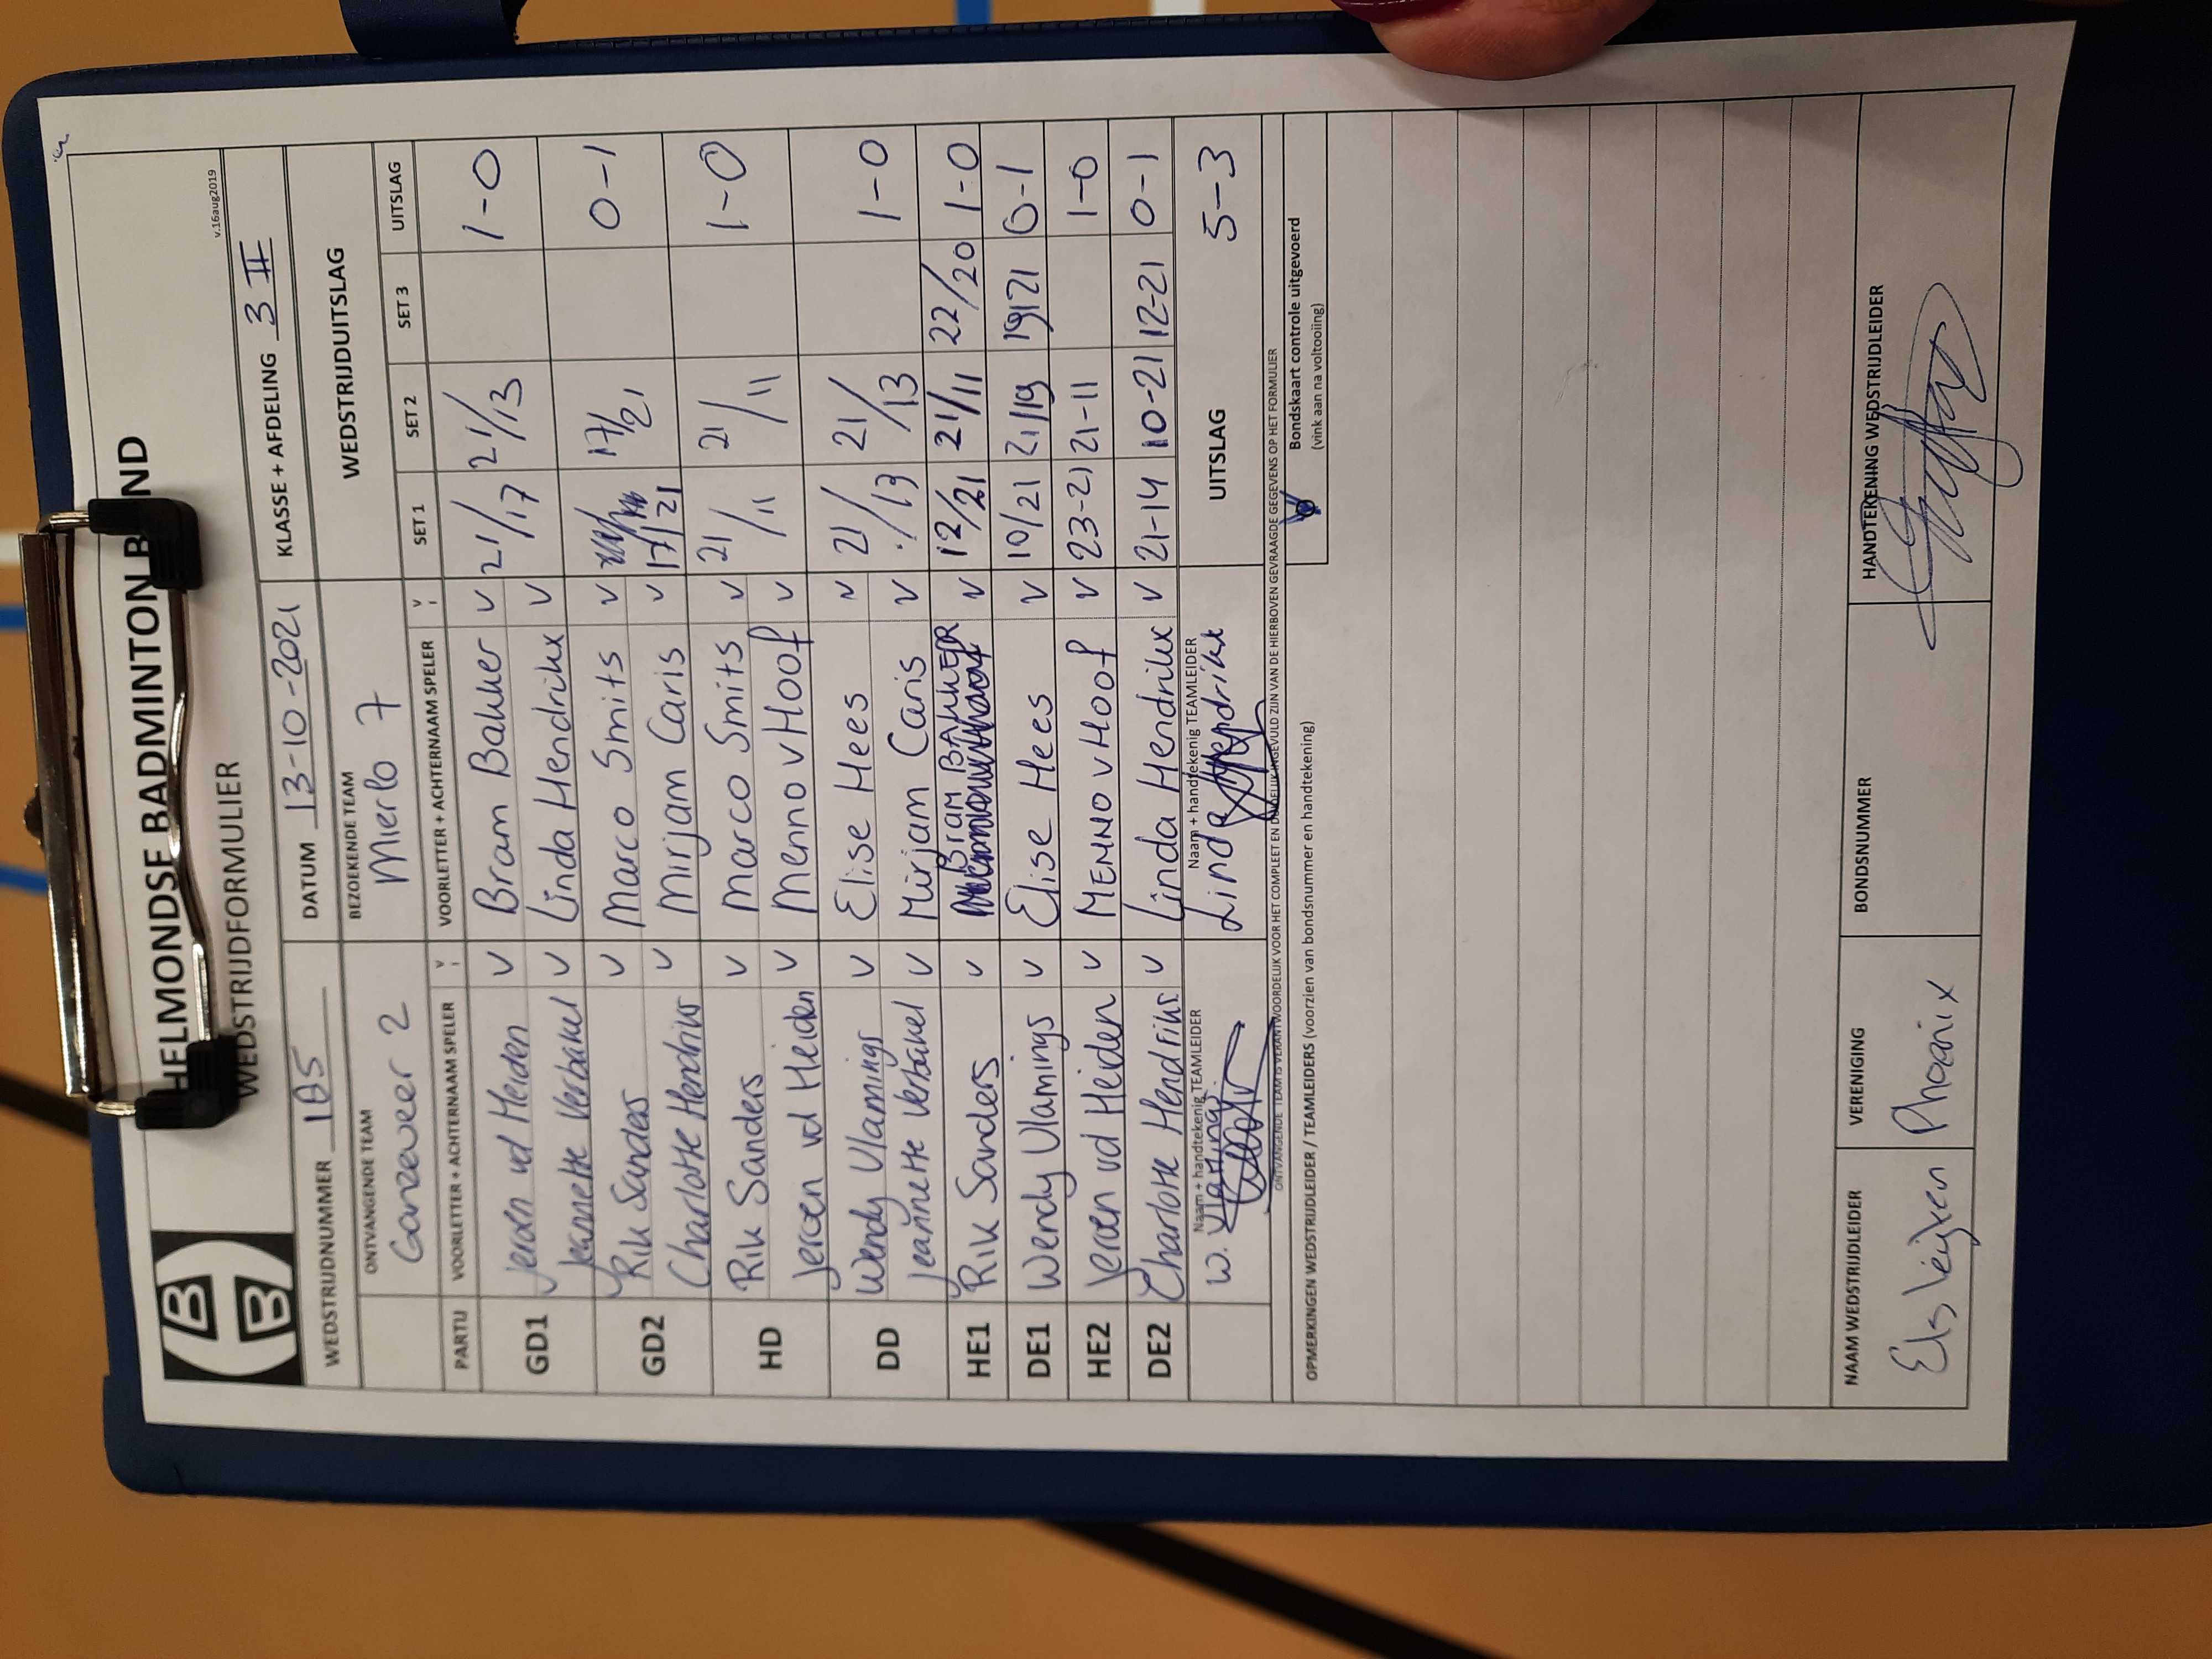 HELMONDSE BADMINTON B ND
WEDSTRIJDFORMULIER
v.16aug2019
WEDSTRIJDNUMMER 185 DATUM 13-10-2021 KLASSE + AFDELING 3 II
ONTVANGENDE TEAM BEZOEKENDE TEAM WEDSTRIJDUITSLAG
Ganzeveer 2 Mierlo 7
PARTIJ VOORLETTER + ACHTERNAAM SPELER V VOORLETTER + ACHTERNAAM SPELER V SET 1 SET 2 SET 3 UITSLAG
GD1 Jeroen vd Heiden V Bram Bakker V 21/17 21/13 1-0
Jeannette Verbakel V Linda Hendrikx V
GD2 Rik Sanders V Marco Smits V 17/21 17/21 0-1
Charlotte Hendriks V Mirjam Caris V
HD Rik Sanders V Marco Smits V 21/11 21/11 1-0
Jeroen vd Heiden V Menno v Hoof V
DD Wendy Vlamings V Elise Hees V 21/13 21/13 1-0
Jeannette Verbakel V Mirjam Caris V
HE1 Rik Sanders V BRAM BAKKER V 12/21 21/11 22/20 1-0
DE1 Wendy Vlamings V Elise Hees V 10/21 21/19 19/21 0-1
HE2 Jeroen vd Heiden V MENNO v HOOF V 23-21 21-11 1-0
DE2 Charlotte Hendriks V Linda Hendrikx V 21-14 10-21 12-21 0-1
Naam + handtekenig TEAMLEIDER Naam + handtekenig TEAMLEIDER UITSLAG 5-3
W. Vlamings Linda Hendrikx
ONTVANGENDE TEAM IS VERANTWOORDELIJK VOOR HET COMPLEET EN DUIDELIJK INGEVULD ZIJN VAN DE HIERBOVEN GEVRAAGDE GEGEVENS OP HET FORMULIER
OPMERKINGEN WEDSTRIJDLEIDER / TEAMLEIDERS (voorzien van bondsnummer en handtekening)
V Bondskaart controle uitgevoerd
(vink aan na voltooiing)
NAAM WEDSTRIJDLEIDER VERENIGING BONDSNUMMER HANDTEKENING WEDSTRIJDLEIDER
Els Phoenix